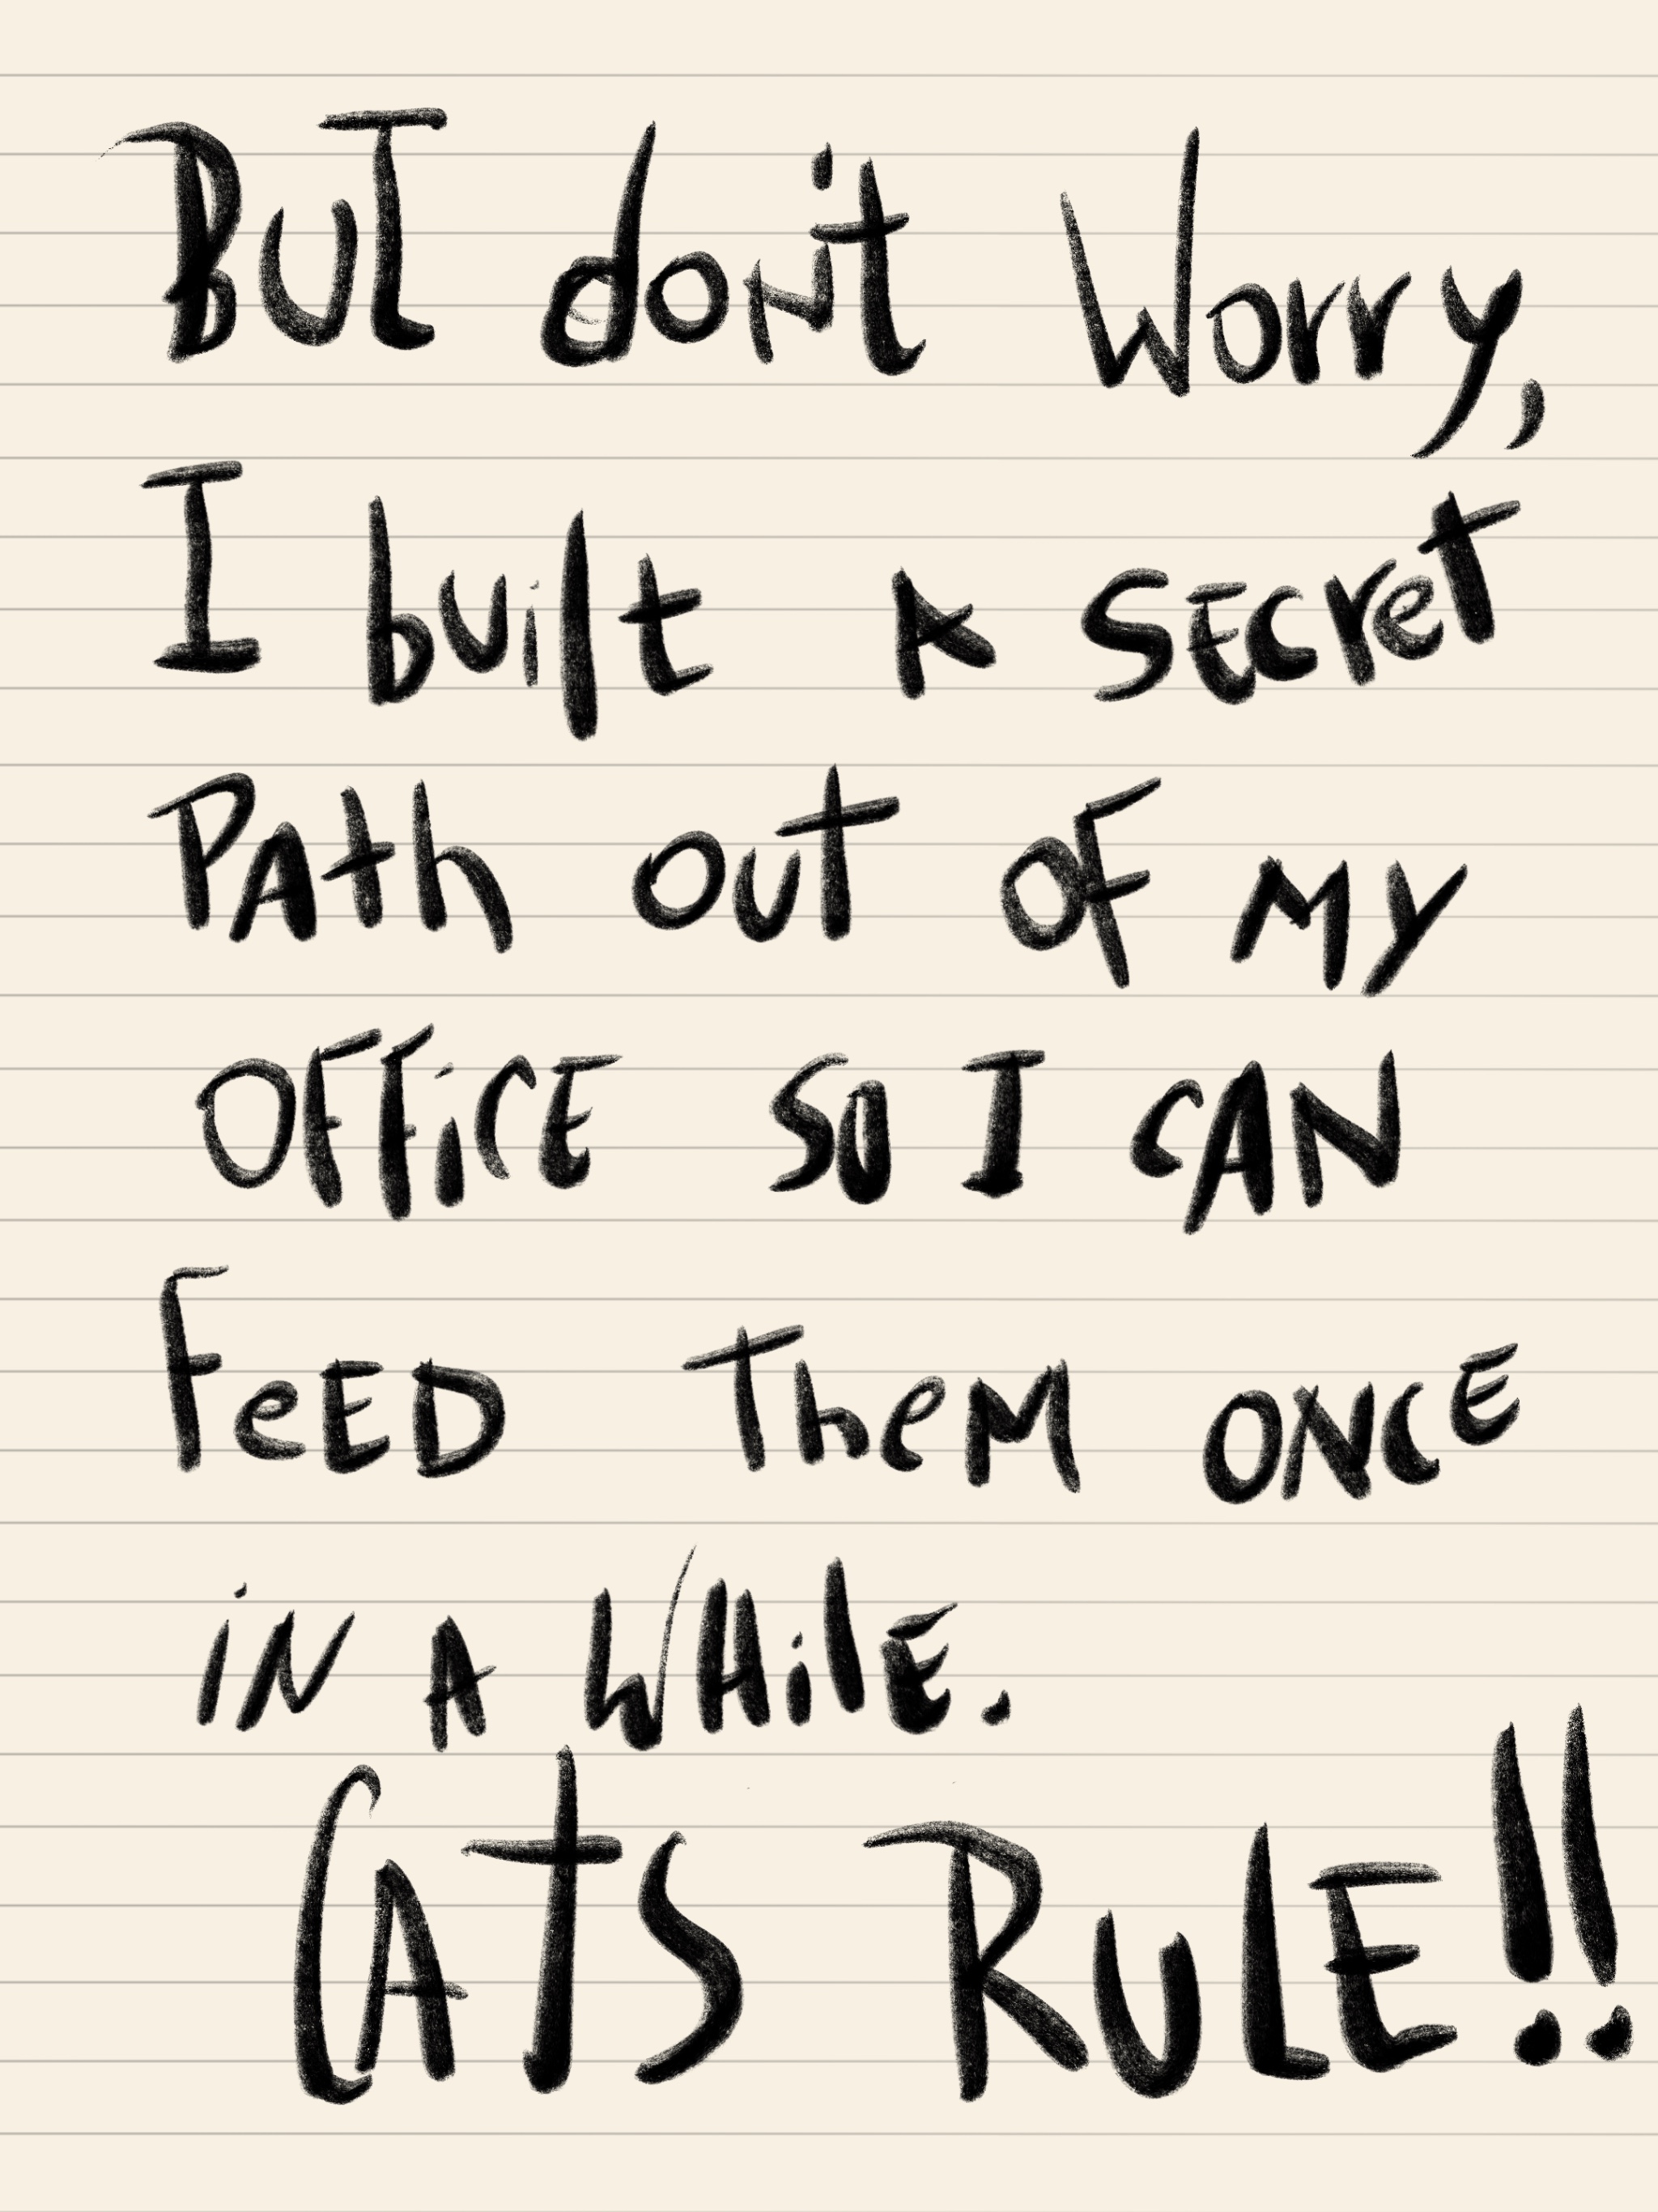 BUT don't Worry,
I built A SEcret
PAth out OF MY
OFFiCE SO I CAN
FeED TheM ONCE
iN A WHilE.
CATS RULE!!